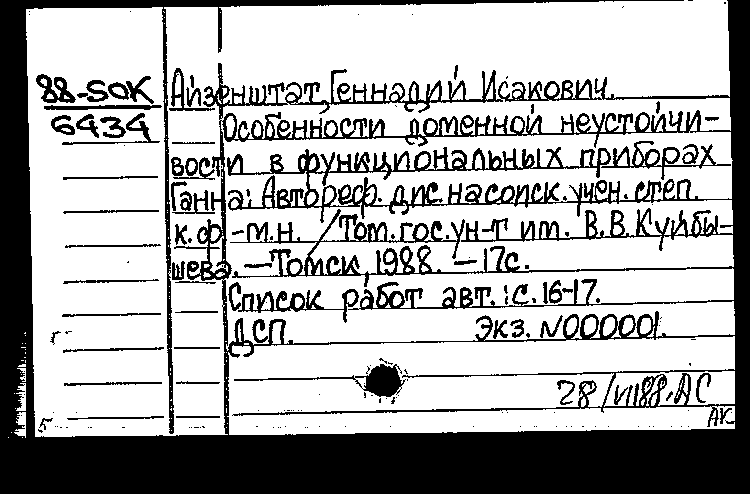 88-50К Айзенштат, Геннадий Исакович.
6434 Особенности доменной неустойчи-
вости в функциональных приборах
Ганна: Автореф. дис. на соиск. учен. степ.
к. ф.-м.н. / Том. гос. ун-т им. В.В. Куйбы-
шева. — Томск, 1988. — 17с.
Список работ авт.: с. 16-17.
ДСП. Экз. N000001.
28/VII88. АС
АК
5